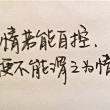 情若能自控，
便不能谓之为情